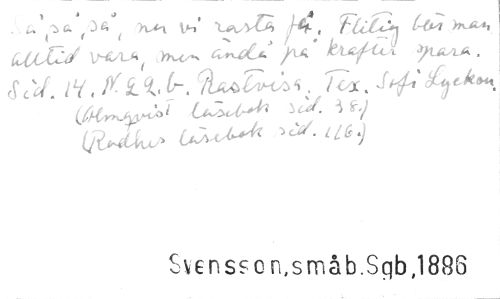 Så, så, så, nu vi rasta få. Flitig bör man
alltid vara, men ändå på krafter spara.
Sid. 14. N. 22. b. Rastvisa. Tex. Sofi Lyckou.
(Almqvist läsebok sid. 38.)
(Rodhes läsebok sid. 116.)
Svensson, småb. Sgb, 1886